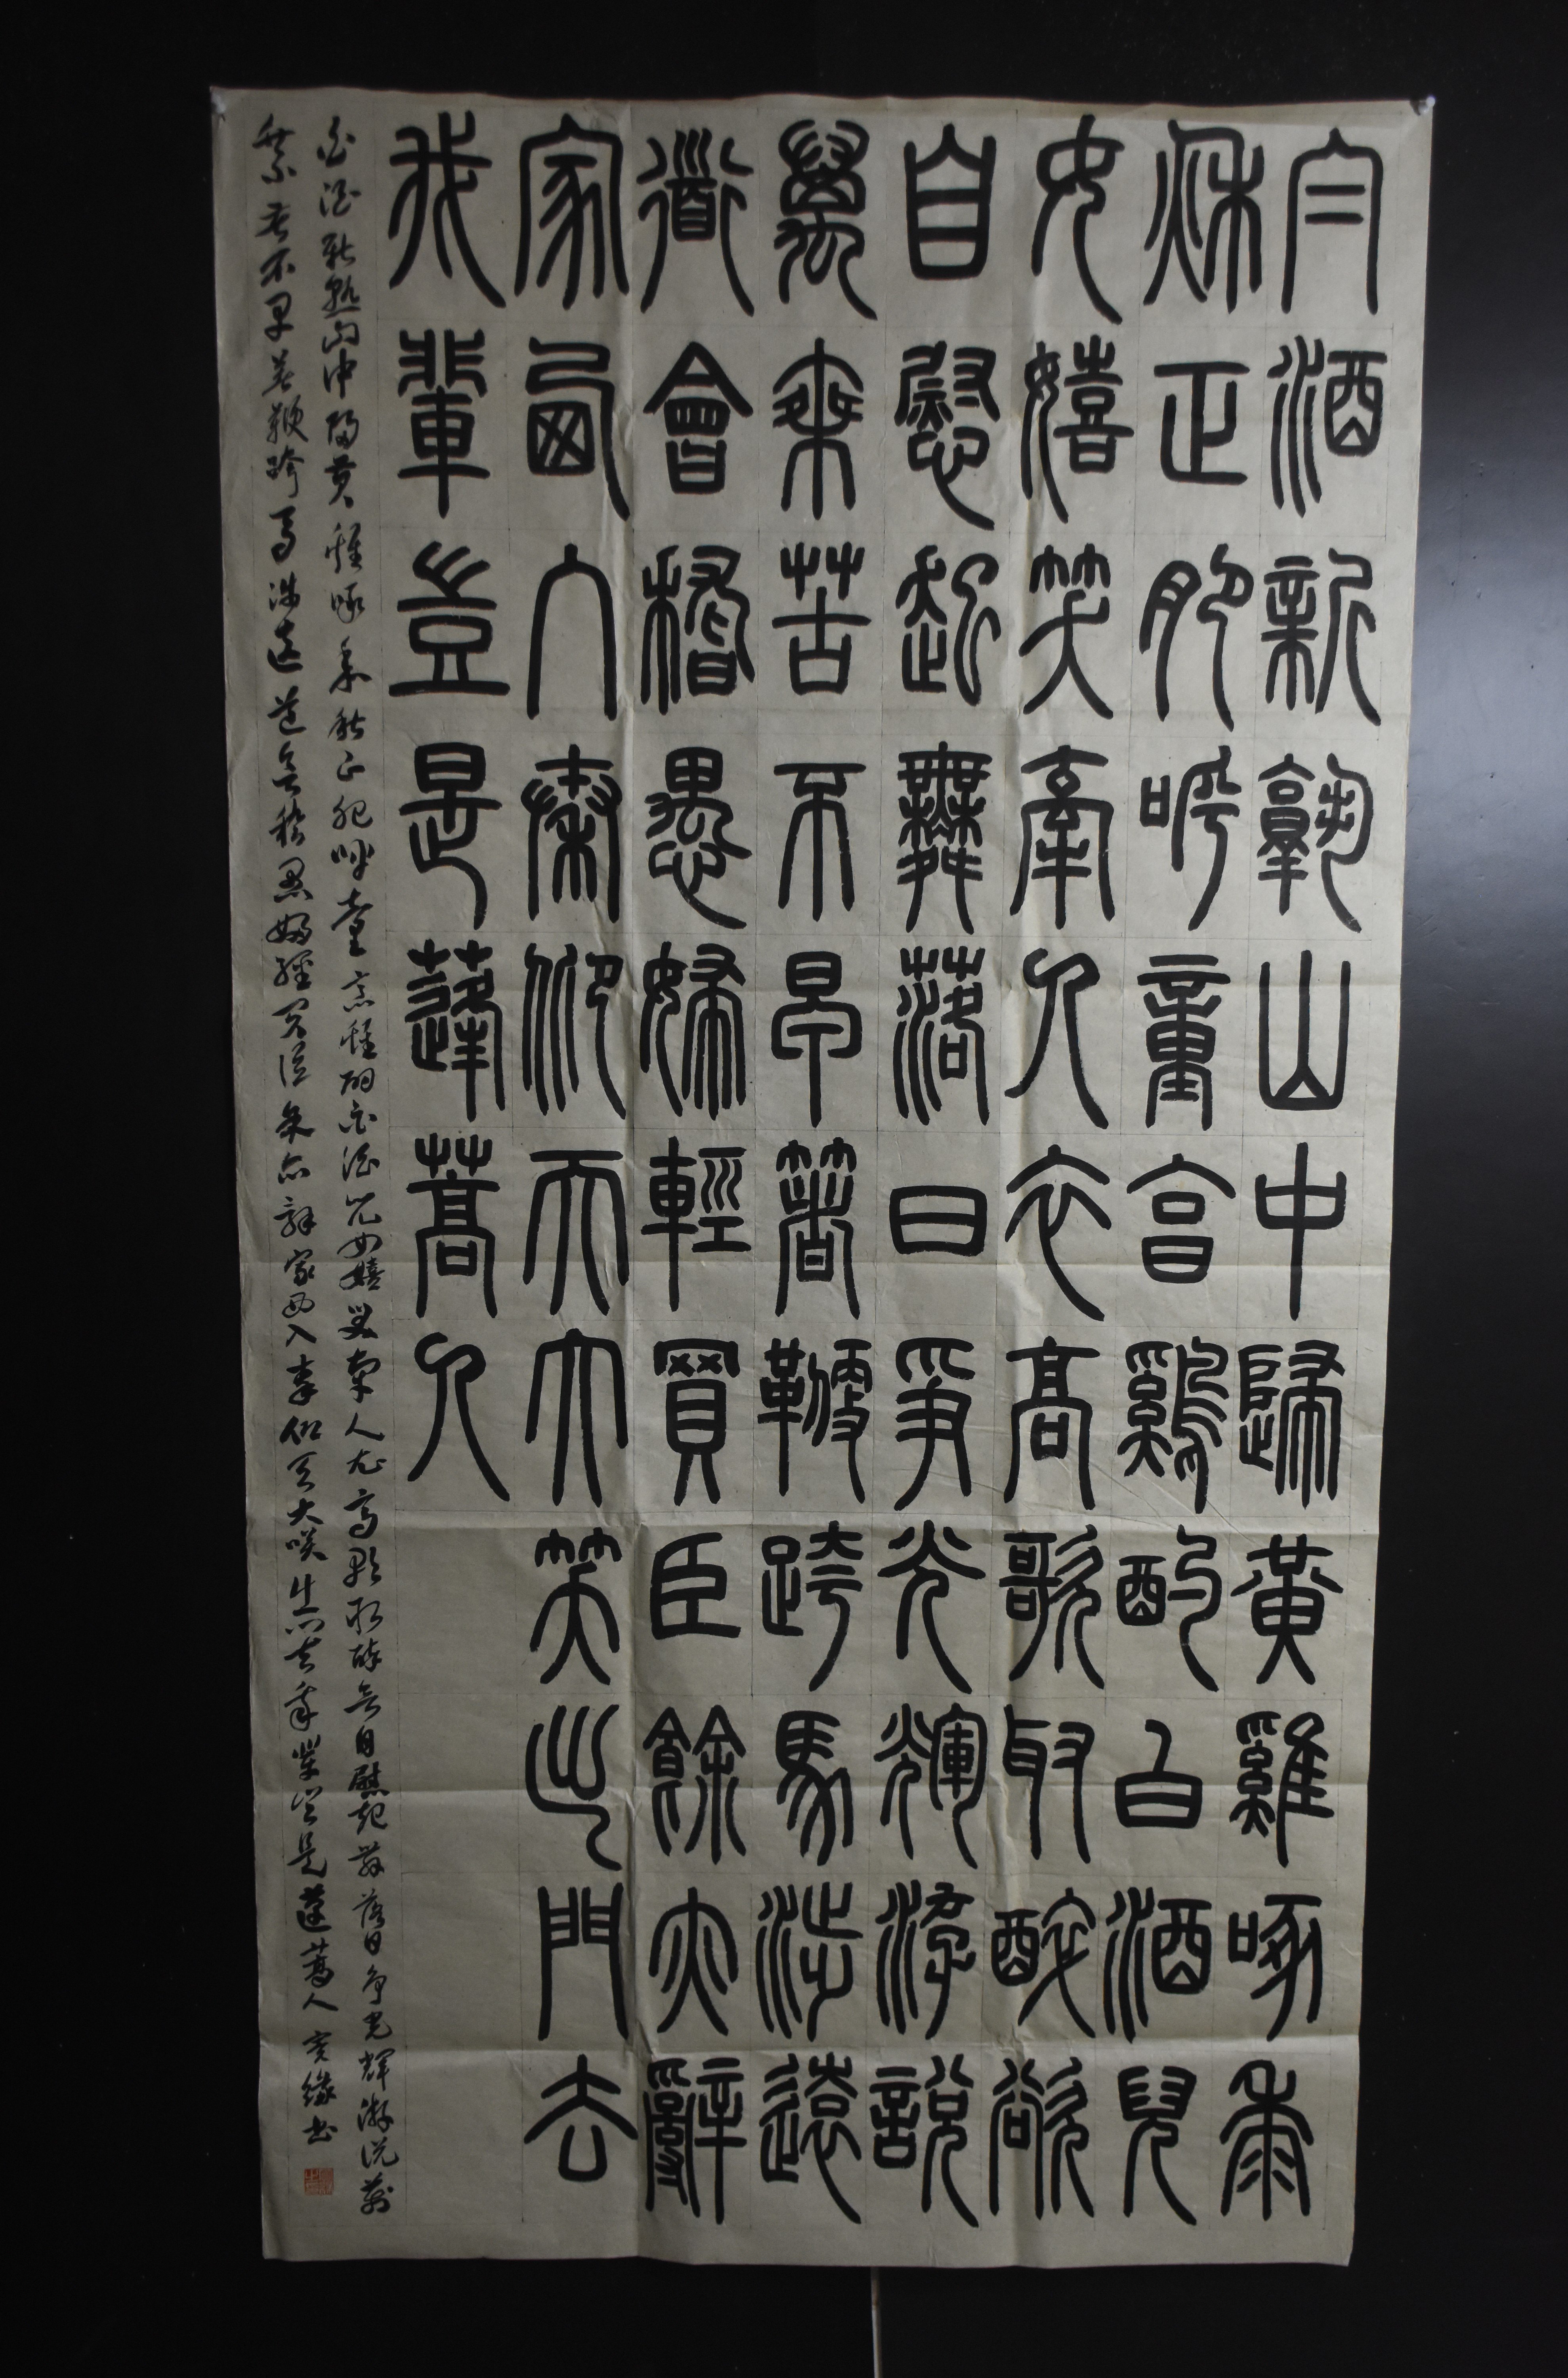 白酒新孰山中歸黃雞啄黍
秋正肥呼童亯鷄酌白酒兒
女嬉笑牽人衣高歌取醉欲
自慰起舞落日爭光輝游說
萬乘苦不早箸鞭跨馬涉遠
道會稽愚婦輕買臣餘亦辭
家西入秦仰天大笑出門去
我輩豈是蓬蒿人
白酒新熟山中歸黃雞啄黍秋正肥呼童烹雞酌白酒兒女嬉笑牽人衣高歌取醉欲自慰起舞落日爭光輝游說萬
乘苦不早著鞭跨馬涉遠道會稽愚婦輕買臣余亦辭家西入秦仰天大笑出門去我輩豈是蓬蒿人 緣书